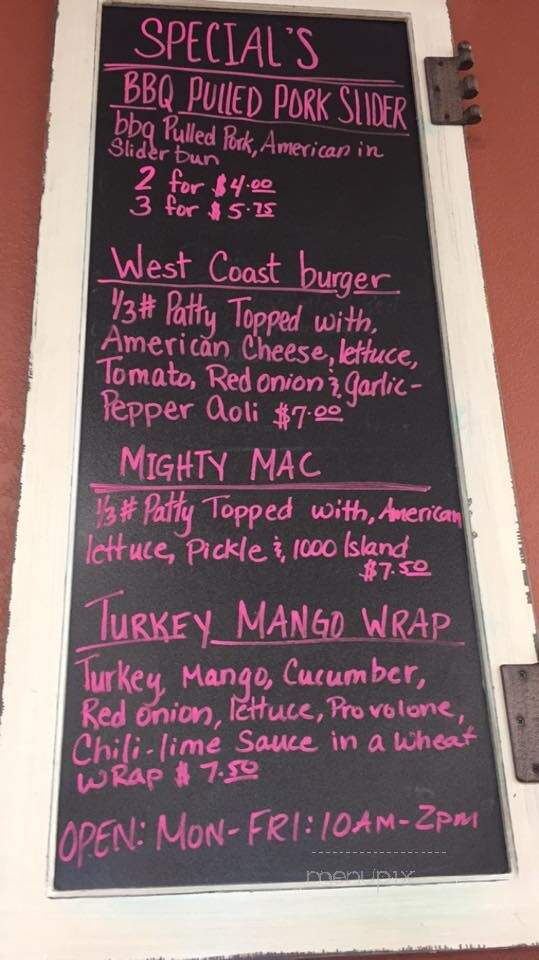 SPECIAL'S
BBQ PULLED PORK SLIDER
bbq Pulled Pork, American in
Slider bun
2 for $4.00
3 for $5.75
West Coast burger
1/3# Patty Topped with,
American Cheese, lettuce,
Tomato, Red onion & garlic-
Pepper Aoli $7.00
MIGHTY MAC
1/3# Patty Topped with, American
lettuce, Pickle & 1000 Island
$7.50
TURKEY MANGO WRAP
Turkey, Mango, Cucumber,
Red onion, lettuce, Provolone,
Chili-lime Sauce in a wheat
wRap $7.50
OPEN: MON-FRI: 10AM-2PM
menupix